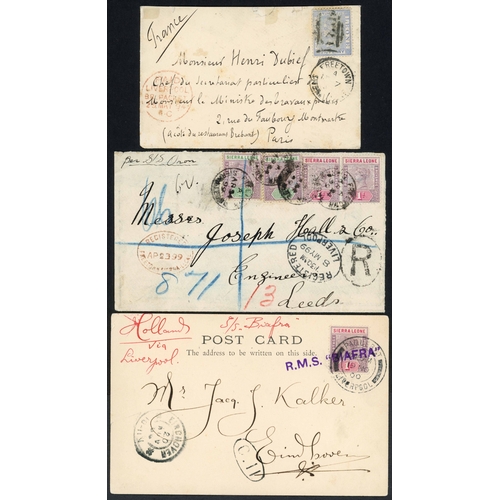 France
Monsieur Henri Dubief
Chef du secretariat particulier
Monsieur le Ministre des travaux publics
2. rue du Faubourg Montmartre
(a côté du restaurant Brebant)
Paris
FREETOWN
per S/S Oron
SIERRA LEONE
SIERRA LEONE
SIERRA LEONE
Messrs
Joseph Hall & Co.
Engineers
Leeds
REGISTERED
LIVERPOOL
8 MY 99
R
REGISTERED
871
13
Holland
via
Liverpool.
S/S. Biafra
POST CARD
The address to be written on this side.
SIERRA LEONE
R.M.S. "BIAFRA"
PAQUEBOT
Mr. Jacq. J. Kalker
Eindhoven
EINDHOVEN